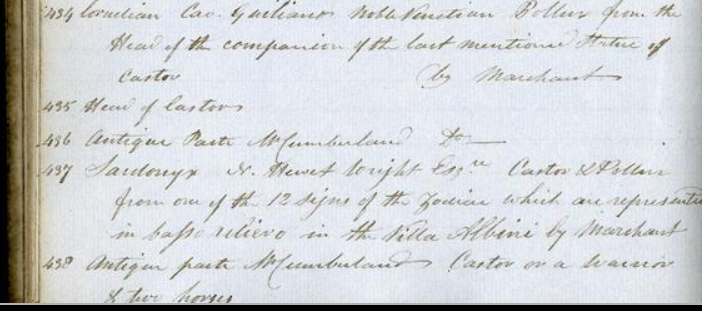 434 Cornelian Cav. Giuliano Noble Venetian Pollux from the
Head of the companion of the last mentioned Statue of
Castor by Marchant
435 Head of Castor
436 Antique Paste Mr Cumberland Do
437 Sardonyx N. Hewet Wright Esqre Castor & Pollux
from one of the 12 signs of the Zodiac which are represented
in basso relievo in the Villa Albini by Marchant
438 Antique paste Mr Cumberland Castor or a warrior
& two horses